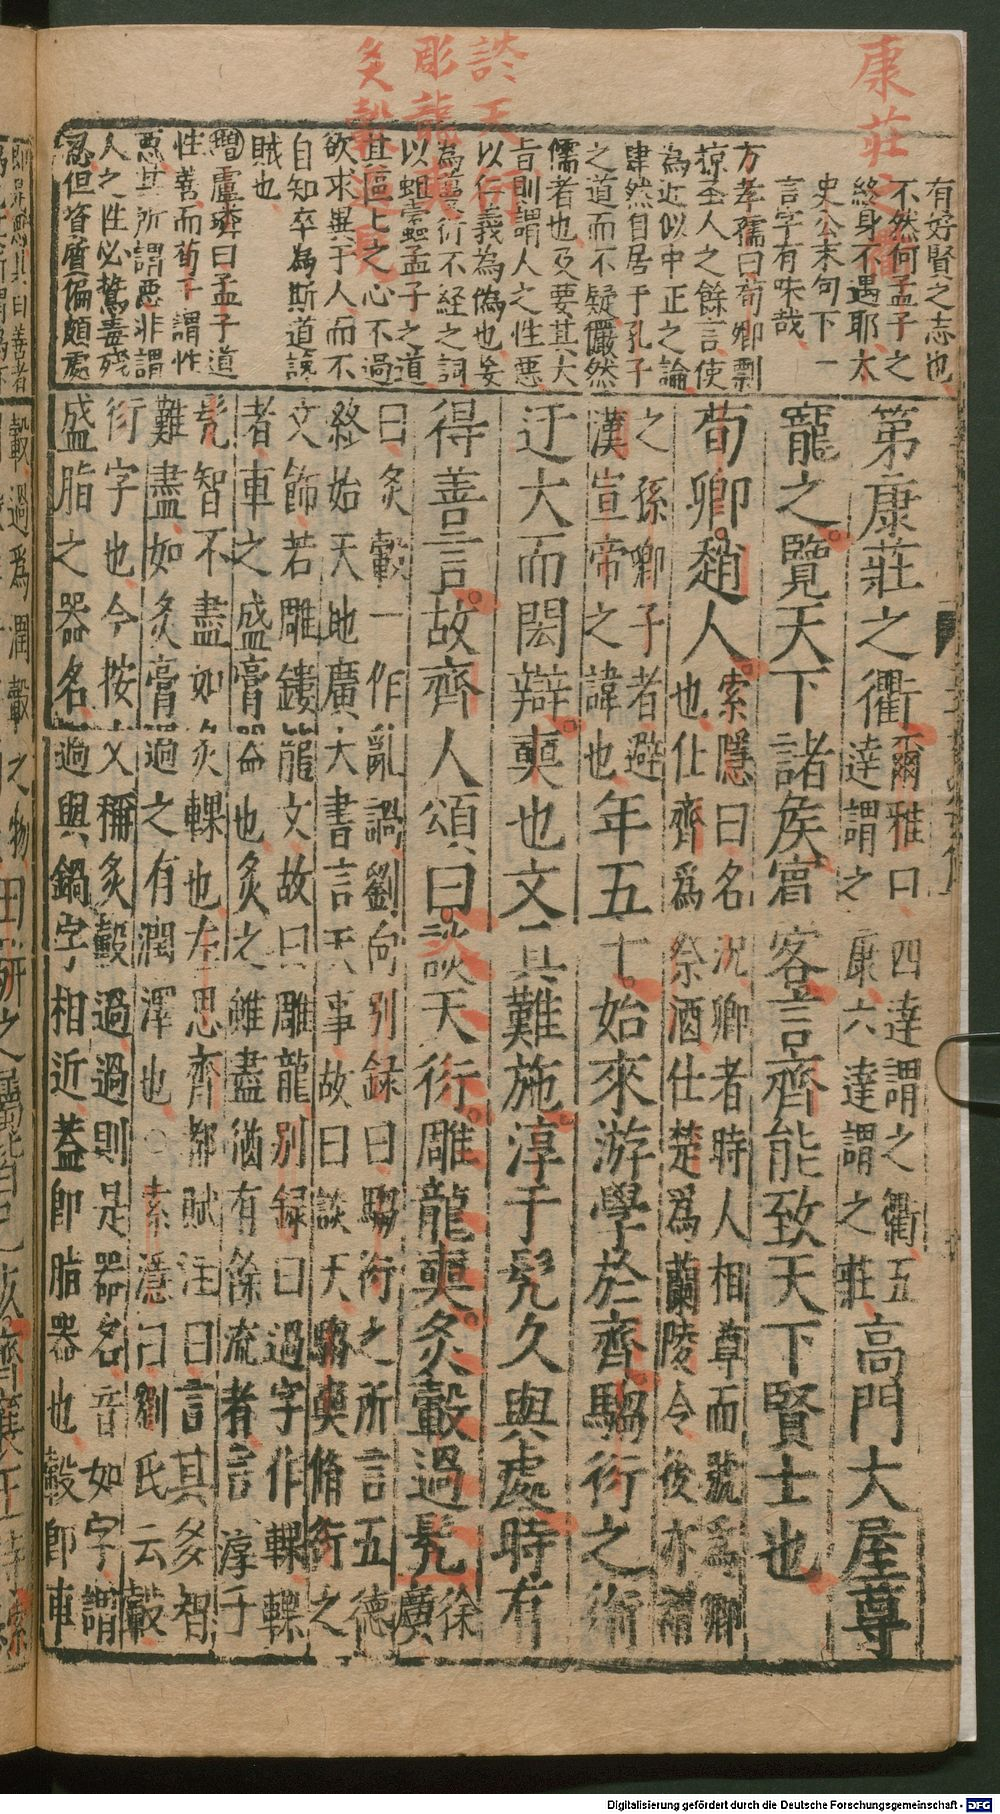 康莊之衢
談天衍
彫龍奭
炙轂過髡
有好賢之志也
不然何孟子之
終身不遇耶太
史公末句下一
言字有味哉
方孝孺曰荀卿剽
掠聖人之餘言使
為近似中正之論
肆然自居于孔子
之道而不疑儼然
儒者也及要其大
旨則謂人之性惡
以仁義為偽也妄
為蔓衍不經之詞
以蛆蠹孟子之道
其區區之心不過
欲求異于人而不
自知卒為斯道讒
賊也
增盧疏曰孟子道
性善而荀子謂性
惡其所謂惡非謂
人之性必鷙毒殘
忍但資質偏頗處
第康莊之衢
爾雅曰四達謂之衢五
達謂之康六達謂之莊
高門大屋尊
寵之覽天下諸侯賓客言齊能致天下賢士也
荀卿趙人
索隱曰名況卿者時人相尊而號爲卿
也仕齊爲祭酒仕楚爲蘭陵令後亦謂
之孫卿子者避
漢宣帝之諱也
年五十始來游學於齊騶衍之術
迂大而閎辯奭也文具難施淳于髡久與處時有
得善言故齊人頌曰談天衍雕龍奭炙轂過髡
徐廣
曰炙轂一作亂調劉向別録曰騶衍之所言五德
終始天地廣大書言天事故曰談天騶奭脩衍之
文飾若雕鏤龍文故曰雕龍別録曰過字作輠輠
者車之盛膏器也炙之雖盡猶有餘流者言淳于
髡智不盡如炙輠也左思齊都賦注曰言其多智
難盡如炙膏過之有潤澤也○索隱曰劉氏云轂
衍字也今按文稱炙轂過過則是器名音如字謂
盛脂之器名過與鍋字相近蓋即脂器也轂即車
轂過爲潤轂之物
Digitalisierung gefördert durch die Deutsche Forschungsgemeinschaft - DFG